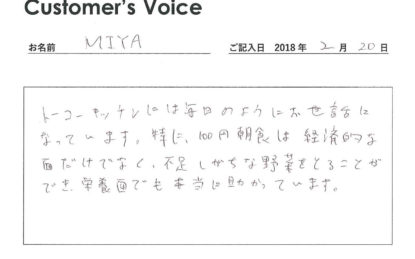 Customer's Voice
お名前 MIYA ご記入日 2018年 2月 20日
トーコーキッチンには毎日のようにお世話に
なっています。特に、100円朝食は経済的な
面だけでなく、不足しがちな野菜をとることが
でき、栄養面でも本当に助かっています。